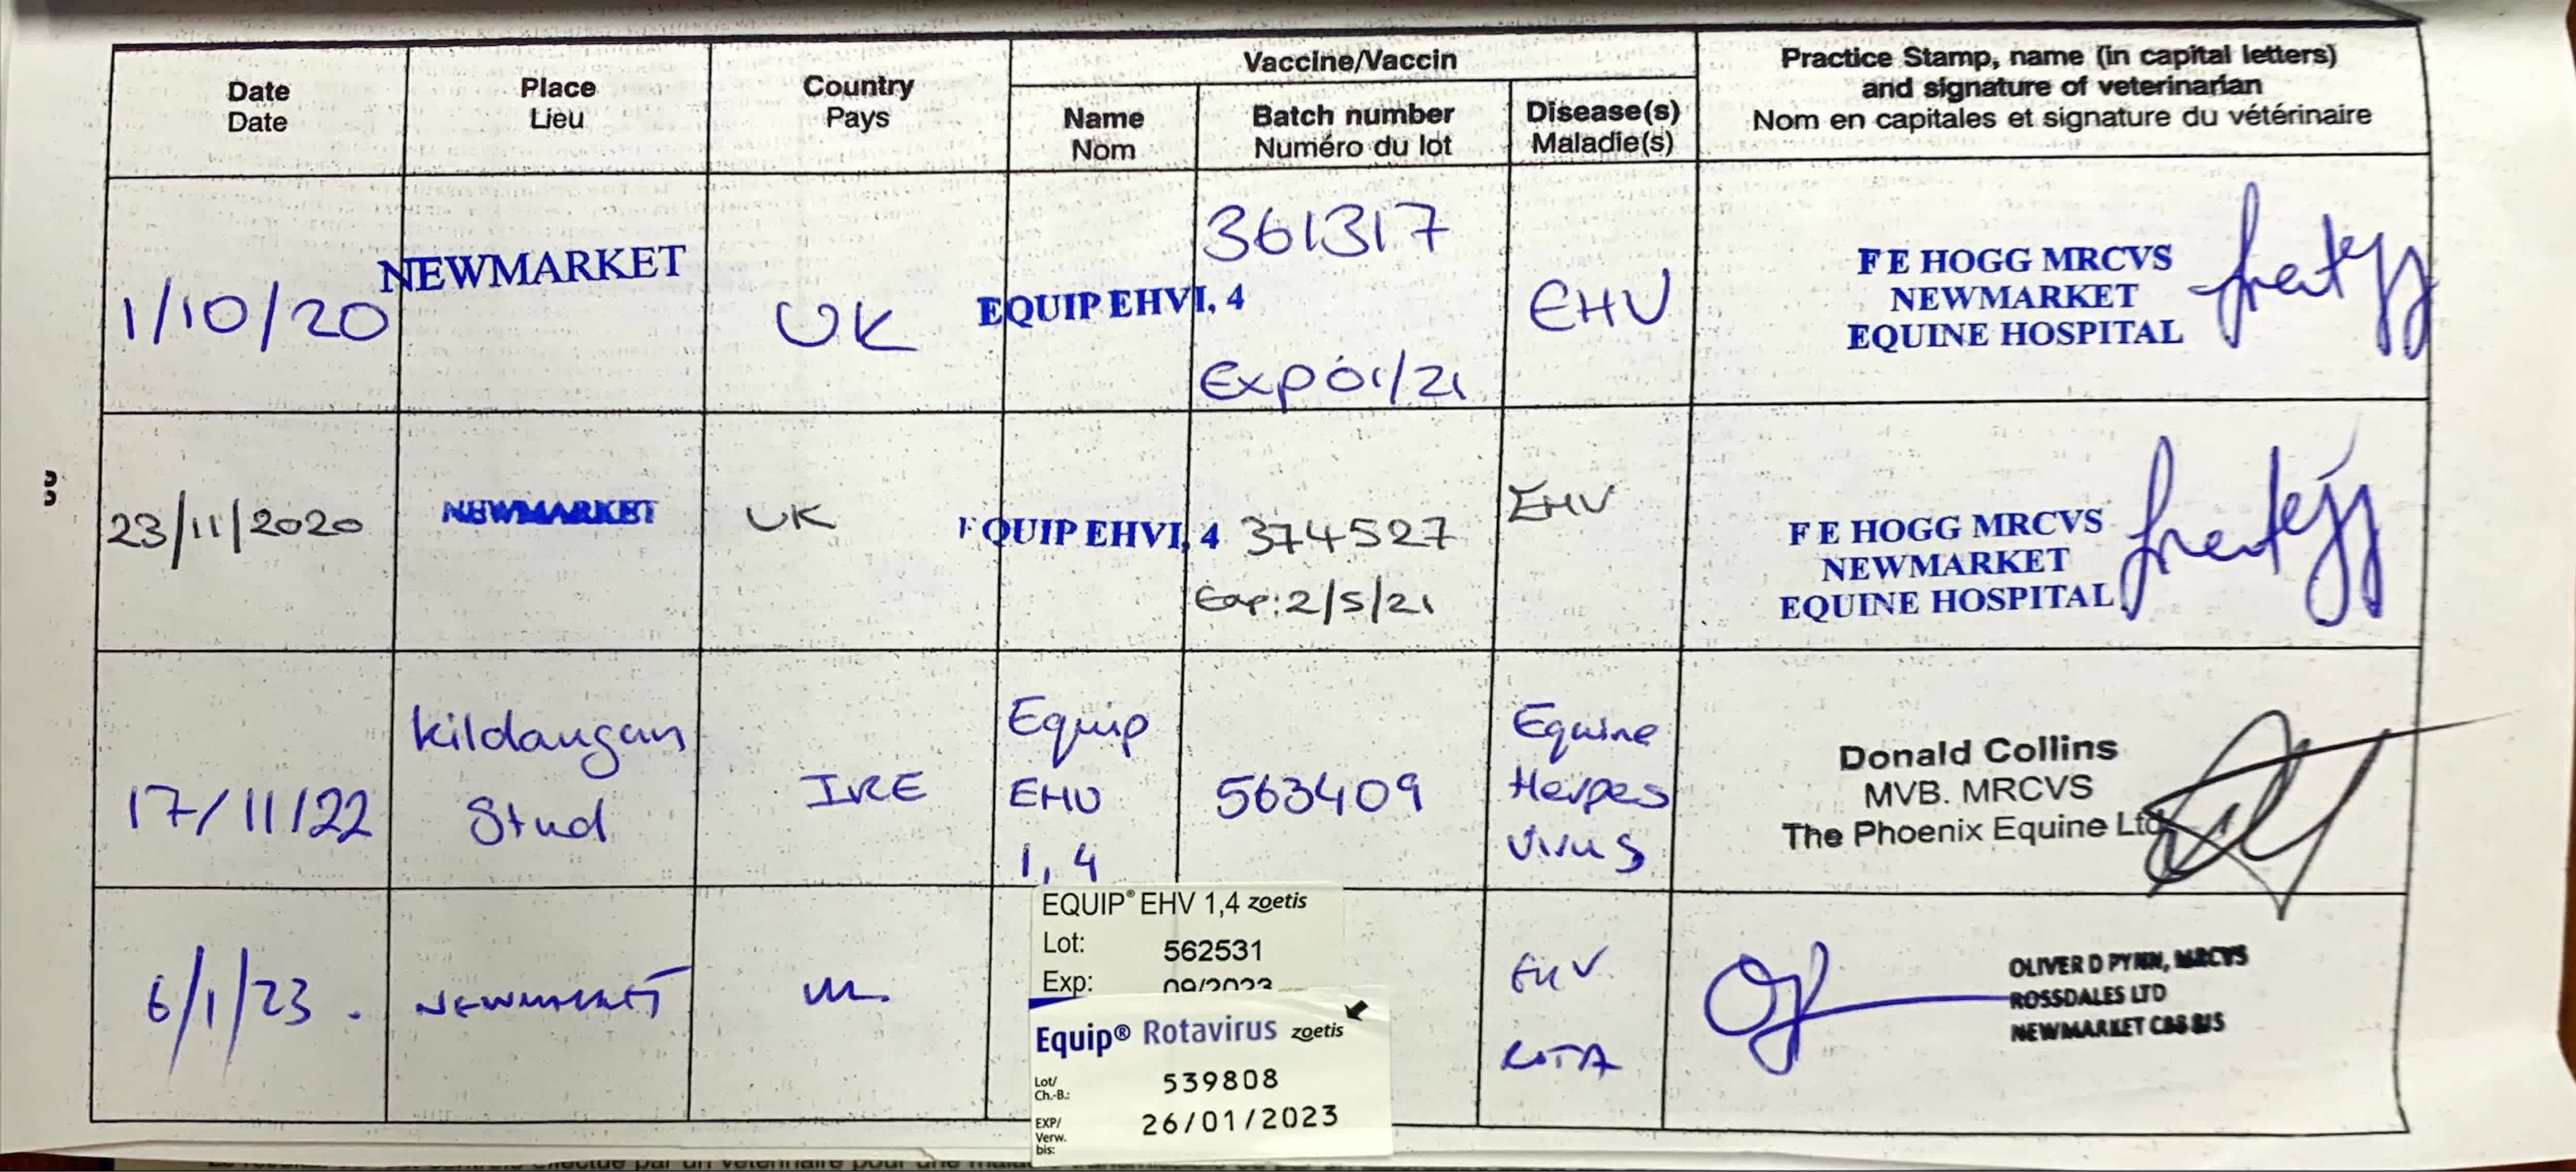 Date
Date
Place
Lieu
Country
Pays
Vaccine/Vaccin
Name
Nom
Batch number
Numéro du lot
Disease(s)
Maladie(s)
Practice Stamp, name (in capital letters)
and signature of veterinarian
Nom en capitales et signature du vétérinaire
1/10/20
NEWMARKET
UK
EQUIP EHVI, 4
361317
Exp 01/21
EHV
F E HOGG MRCVS
NEWMARKET
EQUINE HOSPITAL
23/11/2020
NEWMARKET
UK
EQUIP EHVI, 4
374527
Exp: 2/5/21
EHV
F E HOGG MRCVS
NEWMARKET
EQUINE HOSPITAL
17/11/22
Kildangan
Stud
IRE
Equip
EHV
1, 4
563409
Equine
Herpes
Virus
Donald Collins
MVB. MRCVS
The Phoenix Equine Ltd
6/1/23.
NEWMARKET
UK
EQUIP® EHV 1,4 zoetis
Lot: 562531
Exp: 09/2023
Equip® Rotavirus zoetis
Lot/
Ch.-B.: 539808
EXP/
Verw.
bis: 26/01/2023
EHV
ROTA
OLIVER D PYNN, MRCVS
ROSSDALES LTD
NEWMARKET